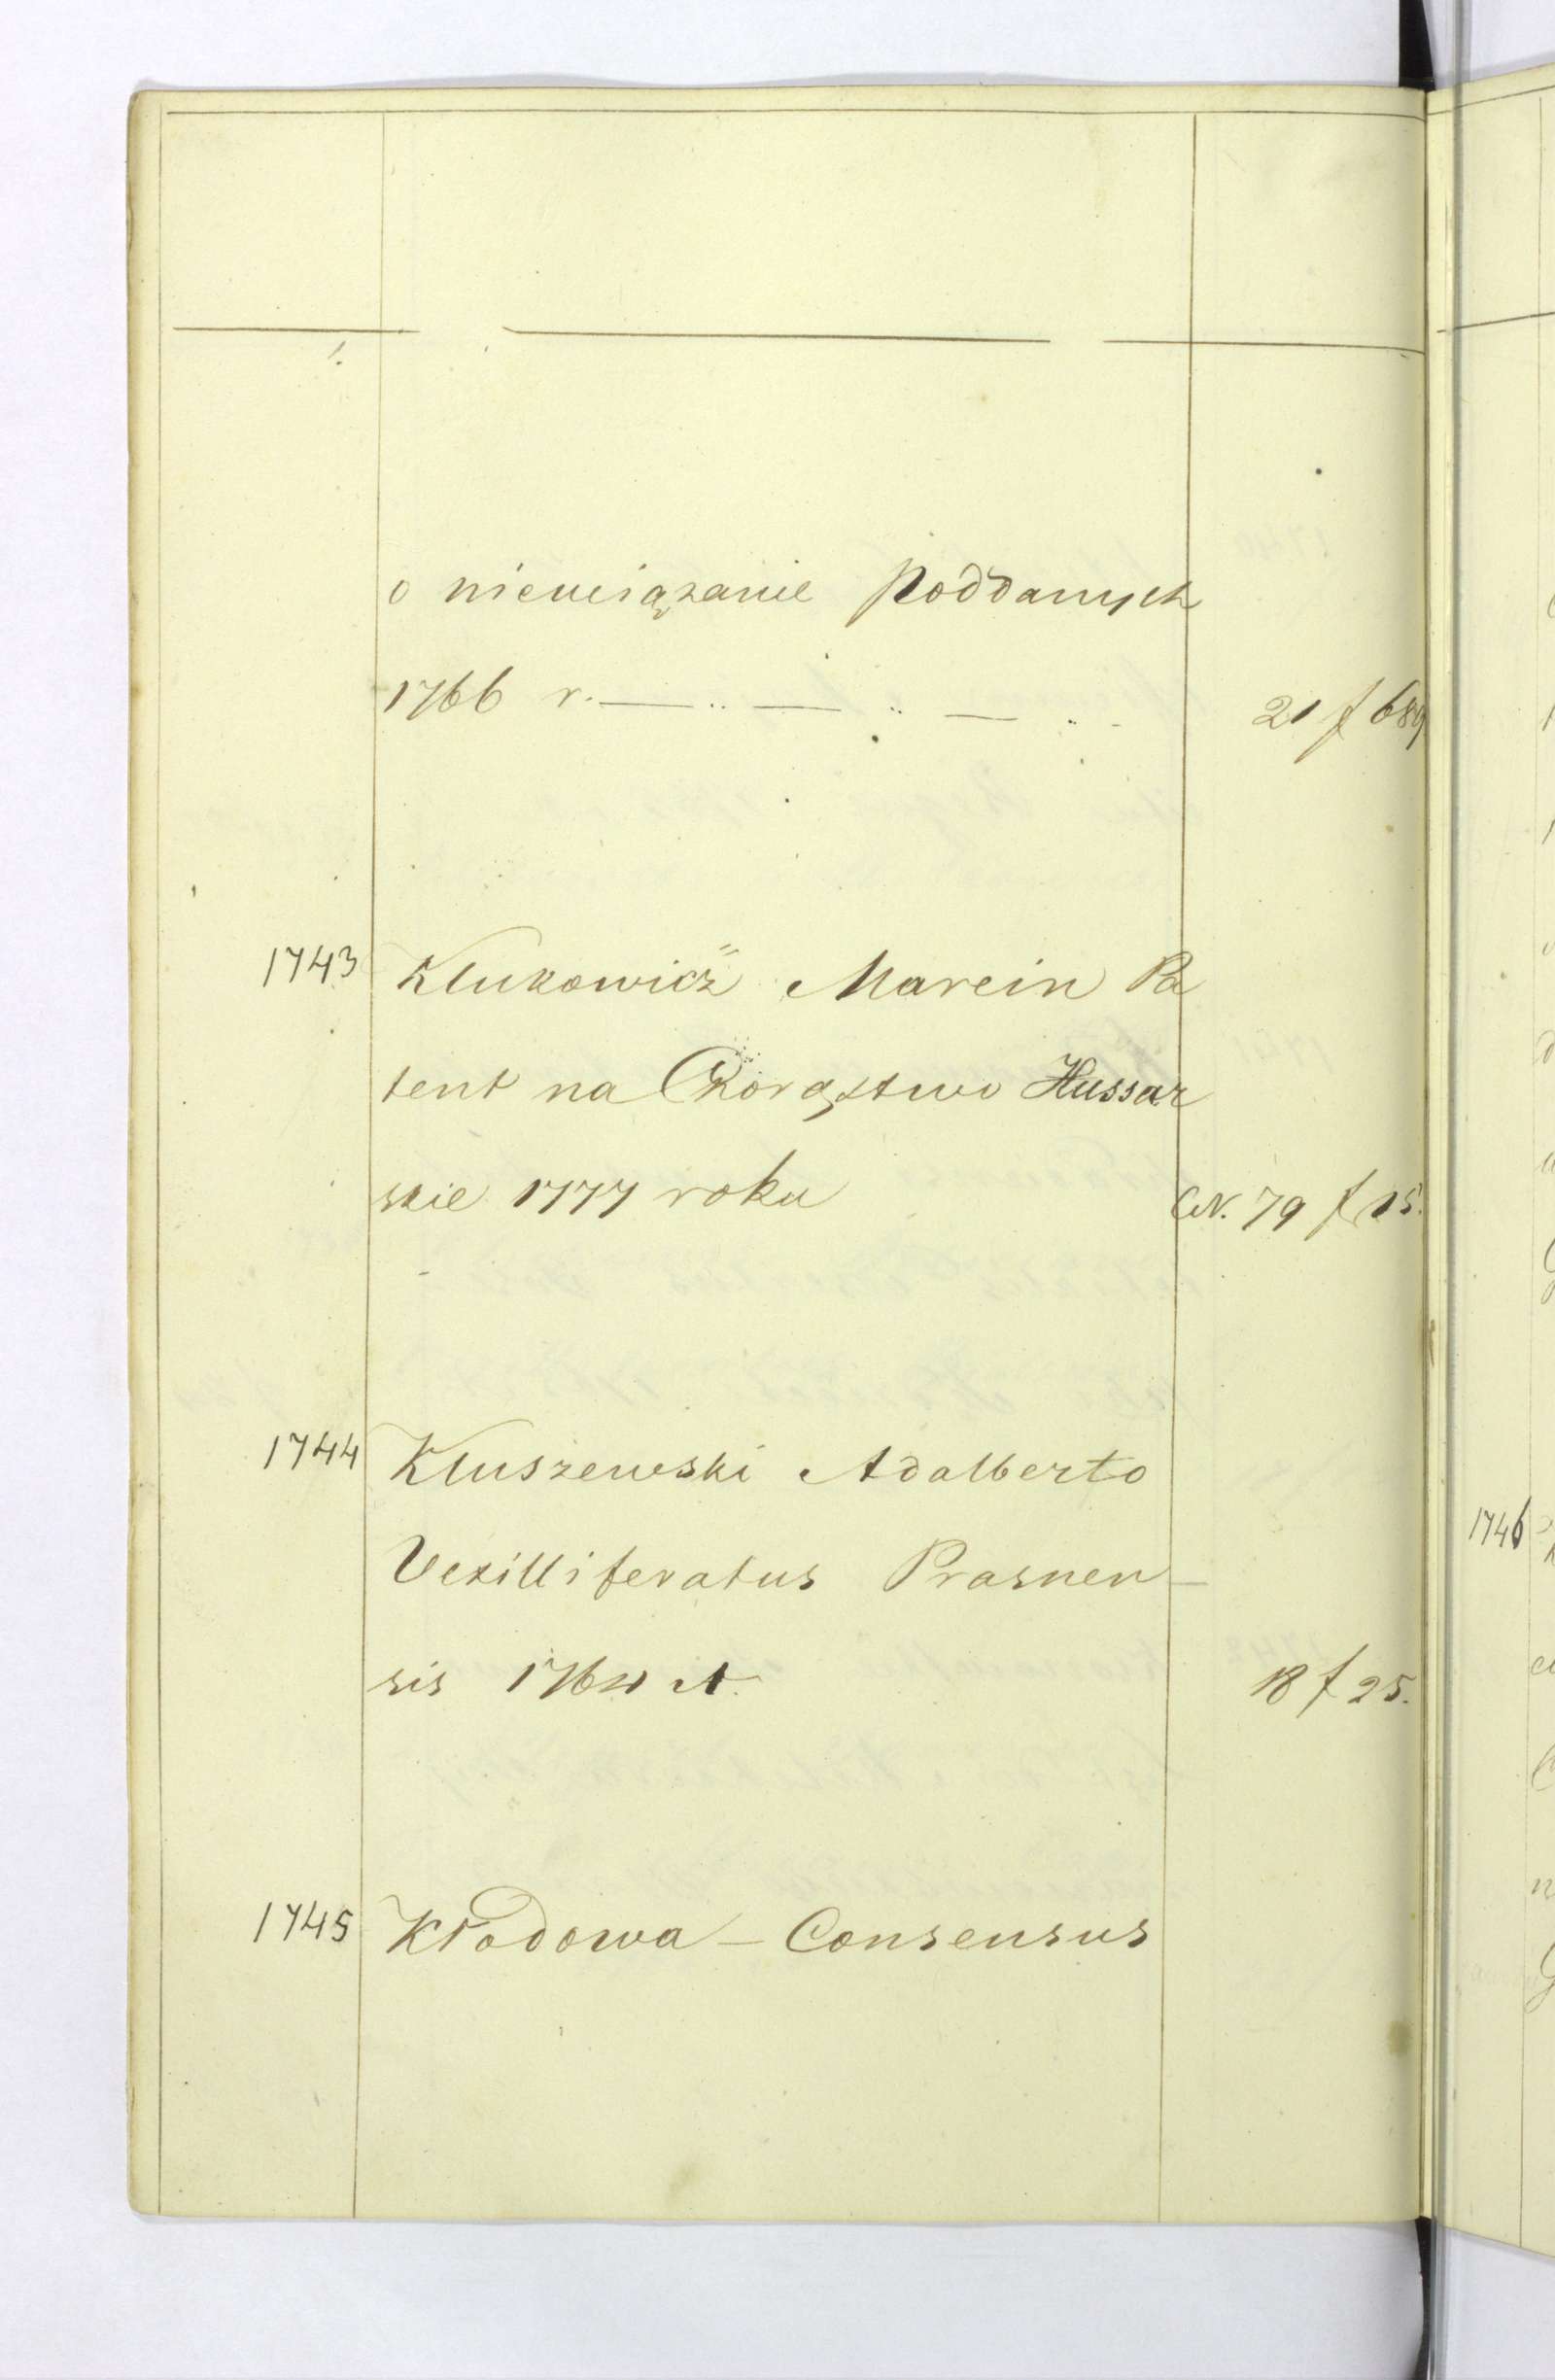 o niewiązanie Poddanych
1766 r. — „ — „ — „ - 21 f 689
1743 Klukowicz Marcin Pa
tent na Chorąstwo Hussar
skie 1777 roku CN. 79 f 15.
1744 Kluszewski Adalberto
Vexilliferatus Prasnen-
sis 1764 A. 18 f 25.
1745 Kłodowa - Consensus
1746